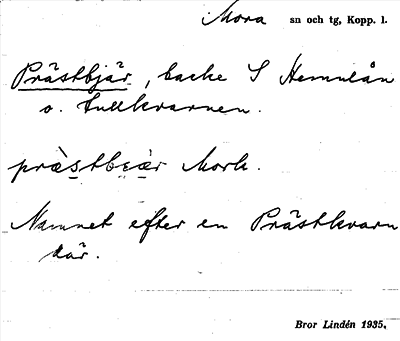 Mora sn och tg, Kopp. l.
Prästbjär, backe S Hemulån
o. Tullkvarnen.
præ̀stbɛær Mork.
Namnet efter en Prästkvarn
där.
Bror Lindén 1935.